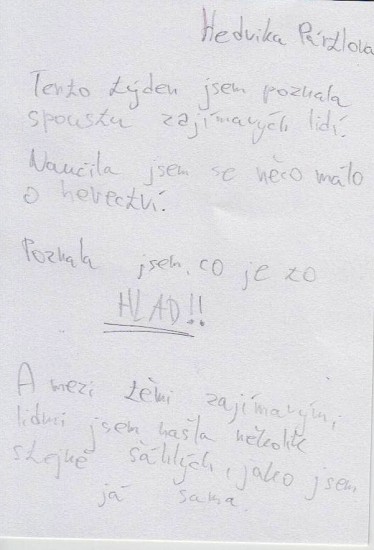 Hedvika Párzlova
Tento týden jsem poznala
spoustu zajímavých lidí.
Naučila jsem se něco málo
o herectví.
Poznala jsem, co je to
HLAD!!
A mezi těmi zajímavými
lidmi jsem našla několik
stejně šílených, jako jsem
já sama.